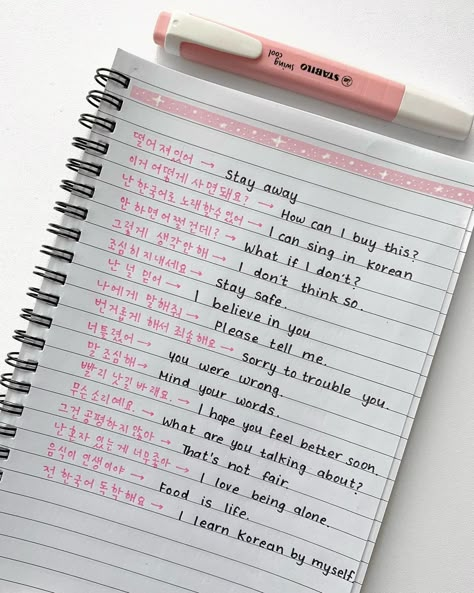 STABILO
swing cool
떨어져있어 → Stay away
이거 어떻게 사면돼요? → How can I buy this?
난 한국어로 노래할수있어 → I can sing in Korean
안 하면 어쩔건데? → What if I don't?
그렇게 생각안해 → I don't think so.
조심히 지내세요 → Stay safe
난 널 믿어 → I believe in you
나에게 말해줘 → Please tell me.
번거롭게 해서 죄송해요 → Sorry to trouble you.
너틀렸어 → you were wrong.
말 조심해 → Mind your words.
빨리 낫길 바래요. → I hope you feel better soon
무슨소리예요. → What are you talking about?
그건 공평하지 않아 → That's not fair
난 혼자 있는게 너무좋아 → I love being alone.
음식이 인생이야 → Food is life.
전 한국어 독학해요 → I learn Korean by myself.